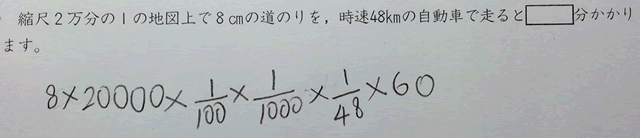 縮尺２万分の１の地図上で８cmの道のりを，時速48kmの自動車で走ると□分かかり
ます。
8×20000×1/100×1/1000×1/48×60